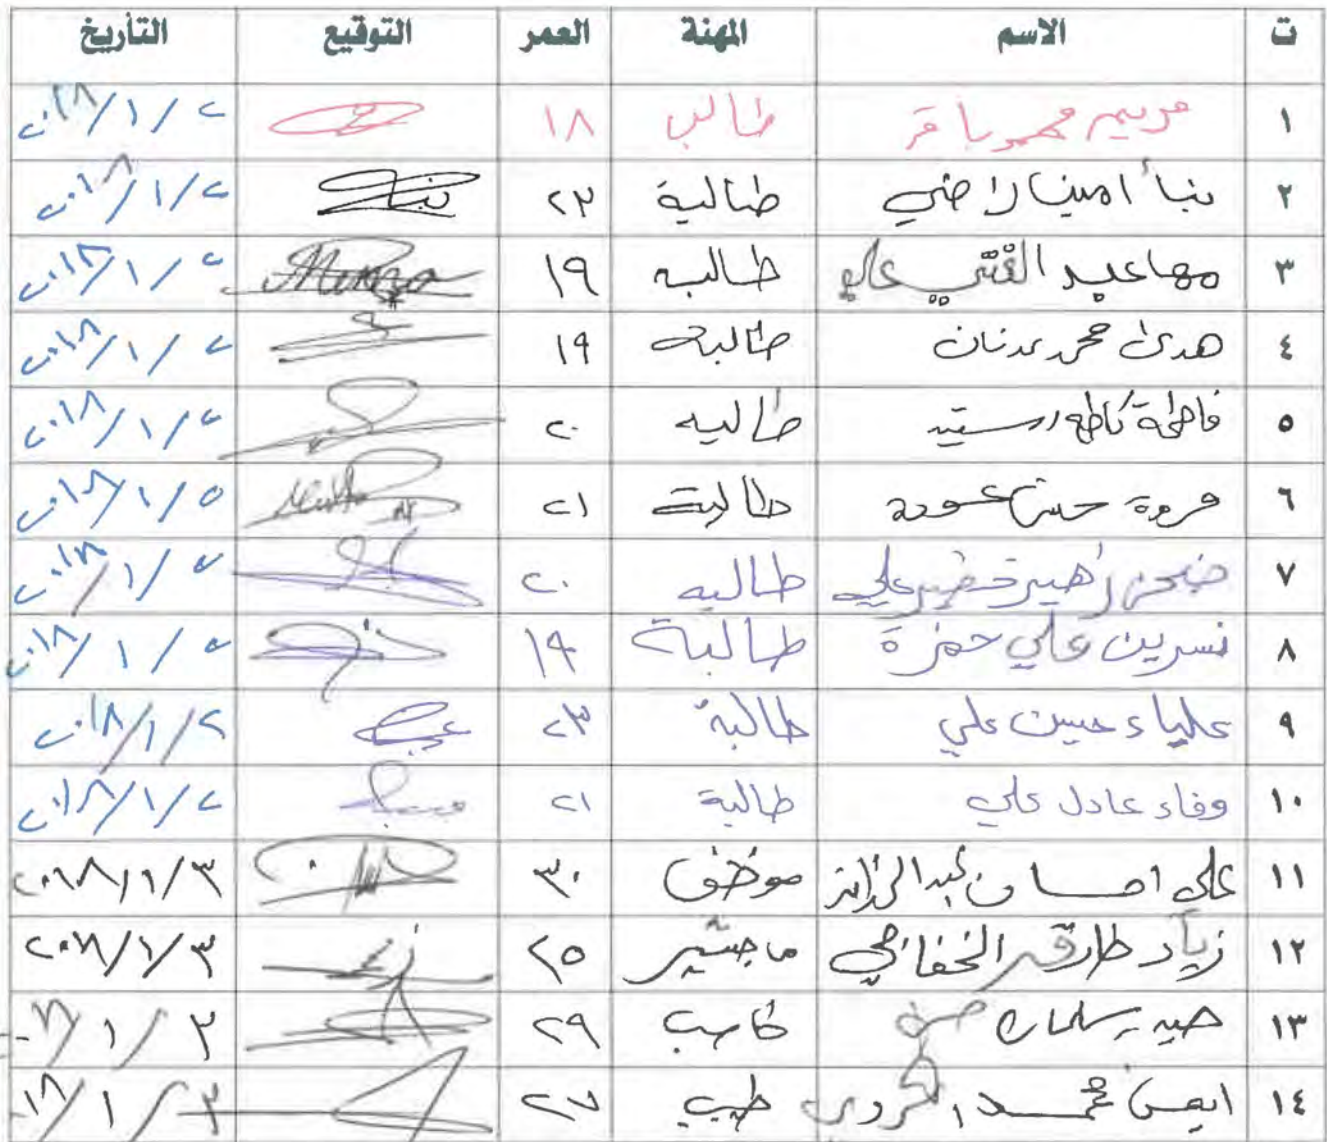 ت الاسم المهنة العمر التوقيع التأريخ
١ مريم محمد باقر طالب ١٨ ٢٠١٨/١/٢
٢ نبأ امين راضي طالبة ٢٣ ٢٠١٨/١/٢
٣ مها عبد الغني علي طالبه ١٩ ٢٠١٨/١/٢
٤ هدى محمد عدنان طالبة ١٩ ٢٠١٨/١/٢
٥ فاطمة كاظم طالبه ٢٠ ٢٠١٨/١/٢
٦ مروة حسن عودة طالبة ٢١ ٢٠١٨/١/٥
٧ ضحى زهير خضير علي طالبه ٢٠ ٢٠١٨/١/٢
٨ نسرين علي حمزة طالبة ١٩ ٢٠١٨/١/٢
٩ علياء حسين علي طالبة ٢٣ ٢٠١٨/١/٢
١٠ وفاء عادل علي طالبة ٢١ ٢٠١٨/١/٢
١١ علي احسان عبد الرزاق موظف ٣٠ ٢٠١٨/١/٣
١٢ زياد طارق الخفاجي ماجستير ٢٥ ٢٠١٨/١/٣
١٣ سلمان حسن كاسب ٢٩
١٤ ايمن محمد الكردي طبيب ٢٧